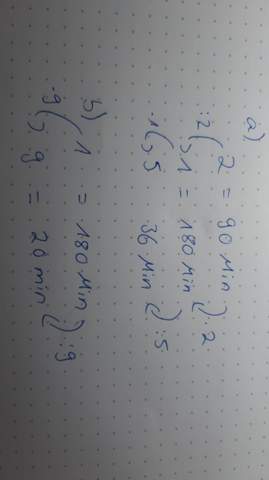 a)
2 = 90 min
:2 · 2
1 = 180 min
·1 :5
5 36 min
b)
1 = 180 min
·9 :9
9 = 20 min